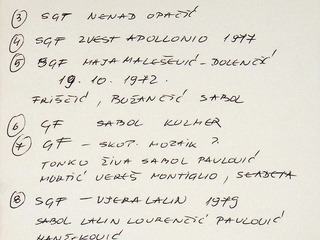 ③ SGF NENAD OPAČIĆ
④ SGF ZVEST APOLLONIO 1977
⑤ SGF MAJA MALEŠEVIĆ - DOLENČIĆ
19. 10. 1972.
FRIŠČIĆ, BUŽANČIĆ SABOL
⑥ GF SABOL KULMER
⑦ GF - SKOP. MOZAIK ?
TONKO ŽIVA SABOL PAULOVIĆ
MURTIĆ VEREŠ MONTIGLIO,
⑧ SGF - VJERA LALIN 1979
SABOL LALIN LOURENČIĆ PAULOVIĆ
HANŽEKOVIĆ